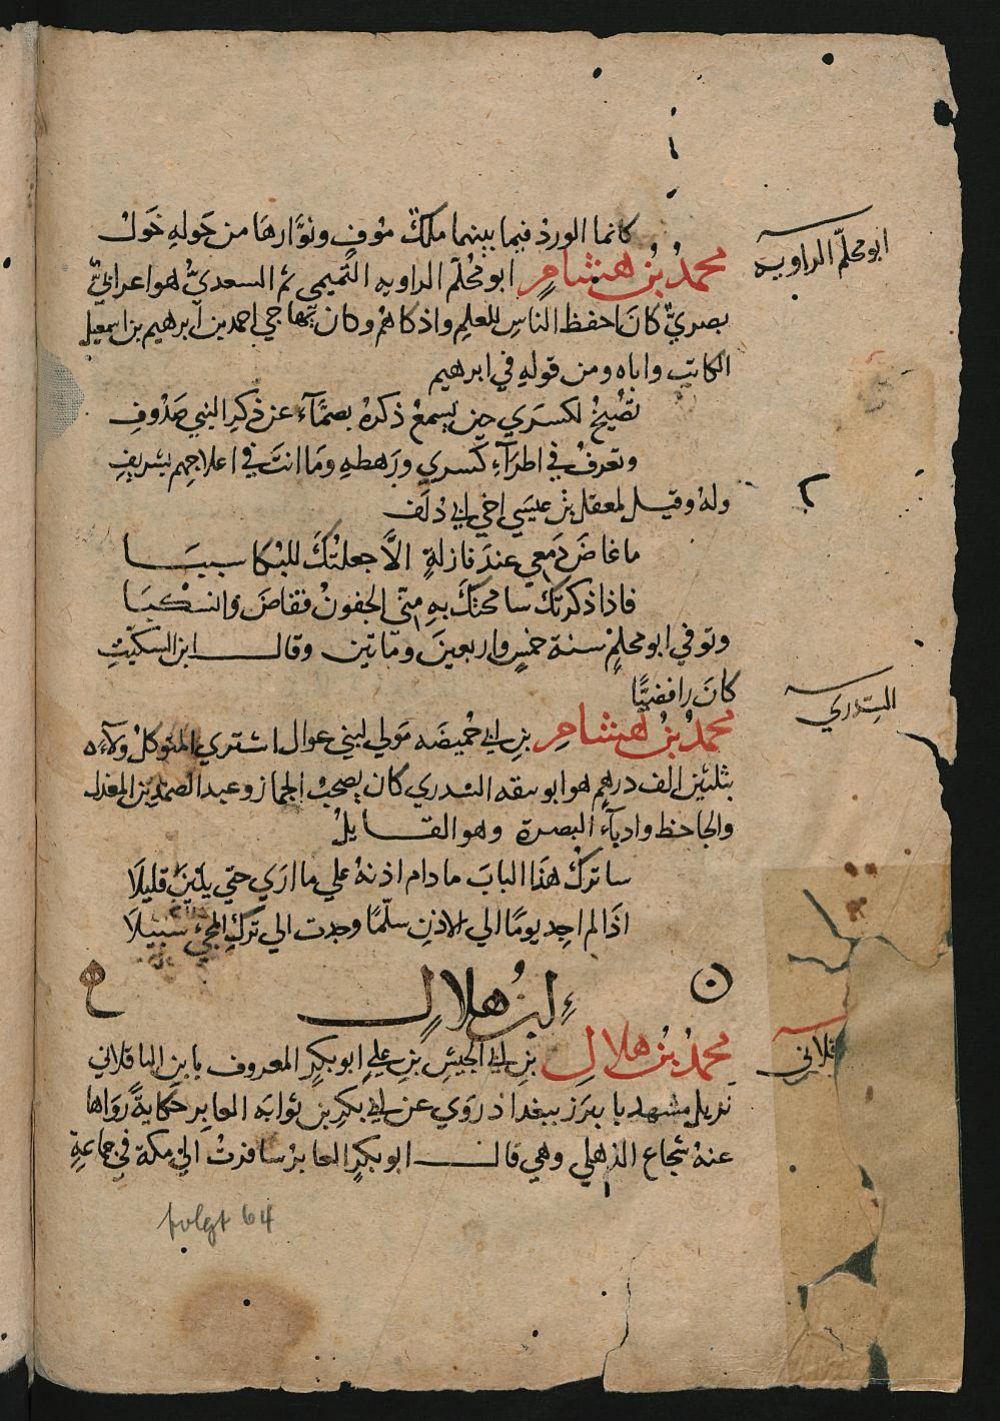 كانما الورد فيما بينهما ملك موف ونوارها من حوله خول
ابو محلم الراويه
محمد بن هشام ابو محلم الراويه التميمي ثم السعدي هو اعرابي
بصري كان احفظ الناس للعلم واذكاهم وكان يهاجي احمد بن ابرهيم بن اسمعيل
الكاتب واباه ومن قوله في ابرهيم
تصيخ لكسري حين يسمع ذكره بصمآء عن ذكر النبي صدوف
وتعرف في اطرآء كسري ورهطه وما انت في اعلاجهم بشريف
وله وقيل لمعقل بن عيسي اخي ابي دلف
ما غاض دمعي عند نازلة الا جعلتك للبكا سببا
فاذا ذكرتك سامحتك به مني الجفون ففاض وانسكبا
وتوفي ابو محلم سنة خمس واربعين وماتين وقال ابن السكيت
كان رافضيا
السدري
محمد بن هشام بن ابي خميصه مولي لبني عوال اشتري المتوكل ولآءه
بثلثين الف درهم هو ابو سقه السدري كان يصحب الجماز وعبد الصمد بن المعذل
والجاحظ وادبآء البصرة وهو القايل
ساترك هذا الباب ما دام اذنه علي ما اري حتي يلين قليلا
اذا لم اجد يوما الي الاذن سلما وجدت الي ترك المجيء سبيلا
ابن هلال
محمد بن هلال بن ابي الجيش بن علي ابو بكر المعروف بابن الباقلاني
قلاني
نزيل مشهد باب ابرز ببغداذ روي عن ابي بكر بن ثوابه العابر حكاية رواها
عنه شجاع الذهلي وهي قال ابو بكر العابر سافرت الي مكة في جماعة
folgt 64